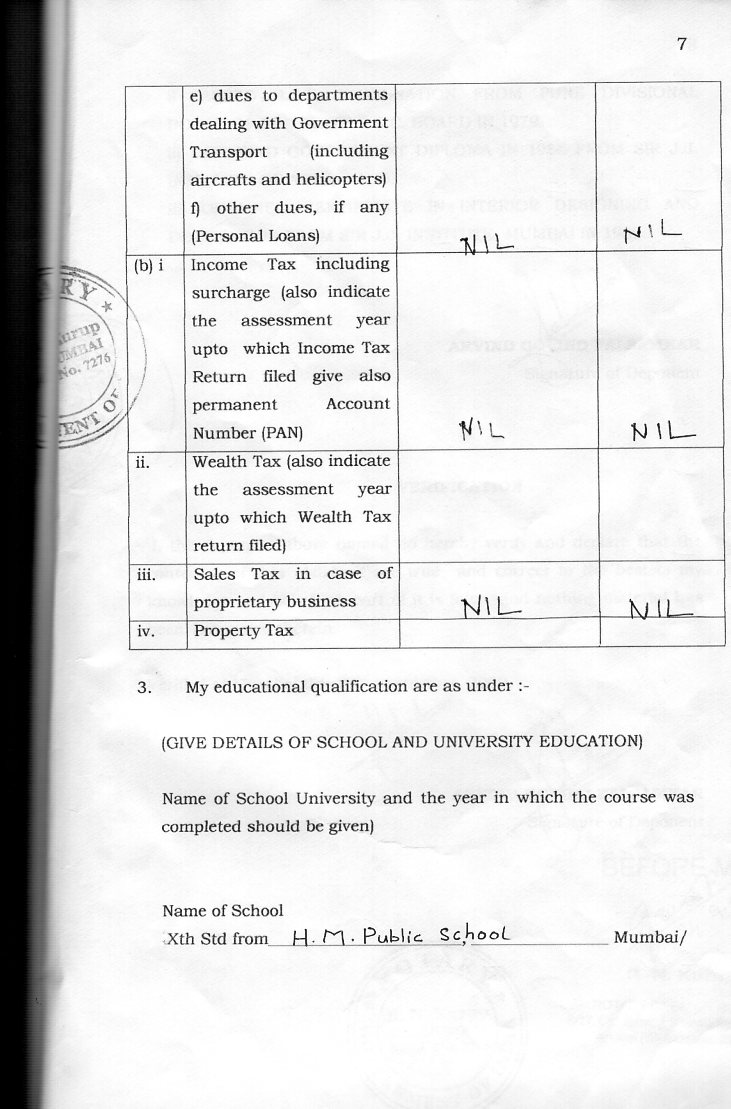 7
e) dues to departments
dealing with Government
Transport (including
aircrafts and helicopters)
f) other dues, if any
(Personal Loans)
NIL NIL
(b) i Income Tax including
surcharge (also indicate
the assessment year
upto which Income Tax
Return filed give also
permanent Account
Number (PAN)
NIL NIL
ii. Wealth Tax (also indicate
the assessment year
upto which Wealth Tax
return filed)
iii. Sales Tax in case of
proprietary business
NIL NIL
iv. Property Tax
No. 7276
3. My educational qualification are as under :-
(GIVE DETAILS OF SCHOOL AND UNIVERSITY EDUCATION)
Name of School University and the year in which the course was
completed should be given)
Name of School
Xth Std from H. M. Public School Mumbai/